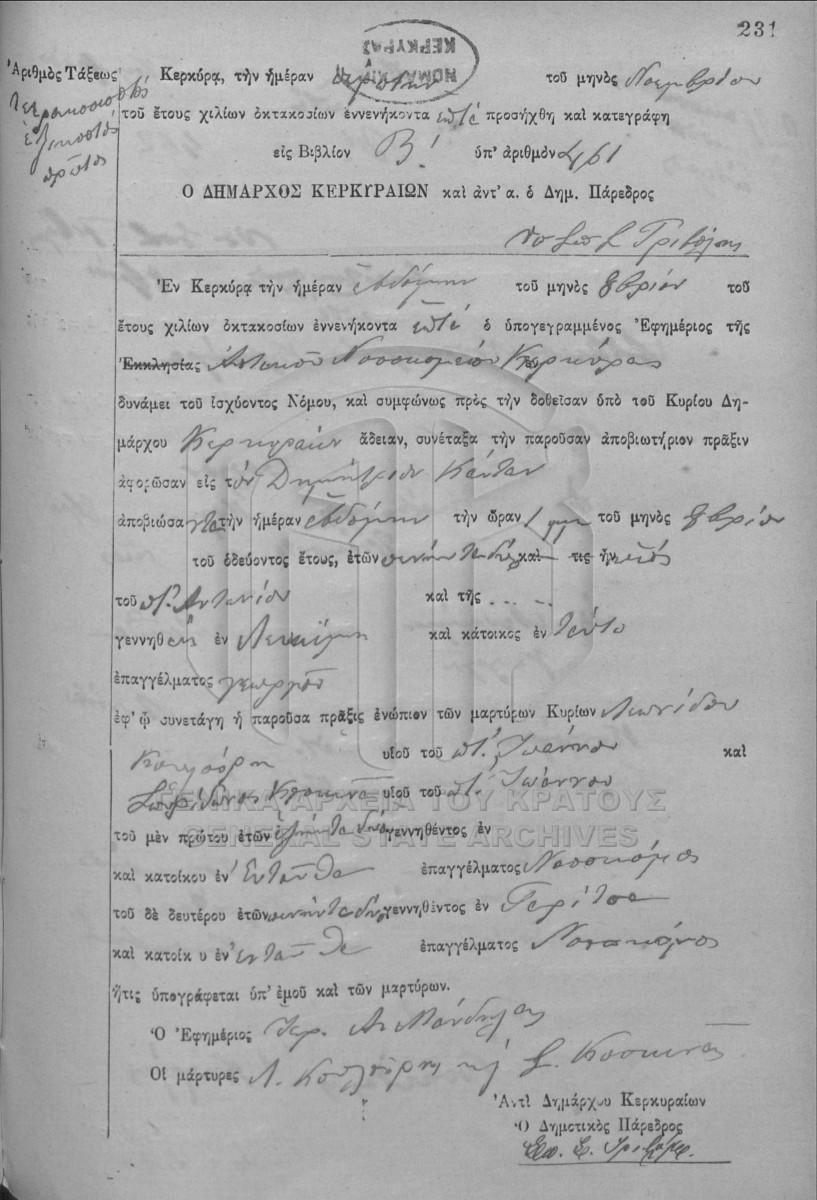 231
ΝΟΜΑΡΧΙΑ ΚΕΡΚΥΡΑΣ
Ἀριθμὸς Τάξεως
τετρακοσιοστὸς
ἑξηκοστὸς
πρῶτος
Κερκύρᾳ, τὴν ἡμέραν πρώτην τοῦ μηνὸς Νοεμβρίου
τοῦ ἔτους χιλίων ὀκτακοσίων ἐννενήκοντα ἑπτά προσήχθη καὶ κατεγράφη
εἰς Βιβλίον Β! ὑπ' ἀριθμὸν 461
Ο ΔΗΜΑΡΧΟΣ ΚΕΡΚΥΡΑΙΩΝ καὶ ἀντ' α. ὁ Δημ. Πάρεδρος
Ἐν Κερκύρᾳ τὴν ἡμέραν ἑβδόμην τοῦ μηνὸς 8βρίου τοῦ
ἔτους χιλίων ὀκτακοσίων ἐννενήκοντα ἑπτά ὁ ὑπογεγραμμένος Ἐφημέριος τῆς
Ἐκκλησίας Ἀστικοῦ Νοσοκομείου Κερκύρας
δυνάμει τοῦ ἰσχύοντος Νόμου, καὶ συμφώνως πρὸς τὴν δοθεῖσαν ὑπὸ τοῦ Κυρίου Δη-
μάρχου Κερκυραίων ἄδειαν, συνέταξα τὴν παροῦσαν ἀποβιωτήριον πρᾶξιν
ἀφορῶσαν εἰς τὸν Δημήτριον Κάνταν
ἀποβιώσαντα τὴν ἡμέραν ἑβδόμην τὴν ὥραν 1 μμ τοῦ μηνὸς 8βρίου
τοῦ ὁδεύοντος ἔτους, ἐτῶν πενήντα δύο καὶ τις ἦν υἱός
τοῦ πτ. Ἀντωνίου καὶ τῆς . . . .
γεννηθεὶς ἐν Λευκίμμῃ καὶ κάτοικος ἐν ταύτῃ
ἐπαγγέλματος γεωργοῦ
ἐφ' ᾧ συνετάγη ἡ παροῦσα πρᾶξις ἐνώπιον τῶν μαρτύρων Κυρίων Λεωνίδου
υἱοῦ τοῦ πτ. Ἰωάννου καὶ
Σπυρίδωνος Κοσκινᾶ υἱοῦ τοῦ πτ. Ἰωάννου
ΓΕΝΙΚΑ ΑΡΧΕΙΑ ΤΟΥ ΚΡΑΤΟΥΣ
GENERAL STATE ARCHIVES
τοῦ μὲν πρώτου ἐτῶν ἑξήντα δύο γεννηθέντος ἐν
καὶ κατοίκου ἐν' ἐνταῦθα ἐπαγγέλματος Νοσοκόμος
τοῦ δὲ δευτέρου ἐτῶν πενήντα δύο γεννηθέντος ἐν Γαρίτσα
καὶ κατοίκ υ ἐν' ἐνταῦθα ἐπαγγέλματος Νοσοκόμος
ἥτις ὑπογράφεται ὑπ' ἐμοῦ καὶ τῶν μαρτύρων.
Ὁ Ἐφημέριος Ἱερ. Αν Μάνδηλας
Οἱ μάρτυρες Λ. κὴ Σ. Κοσκινᾶς
Ἀντὶ Δημάρχου Κερκυραίων
Ὁ Δημοτικὸς Πάρεδρος